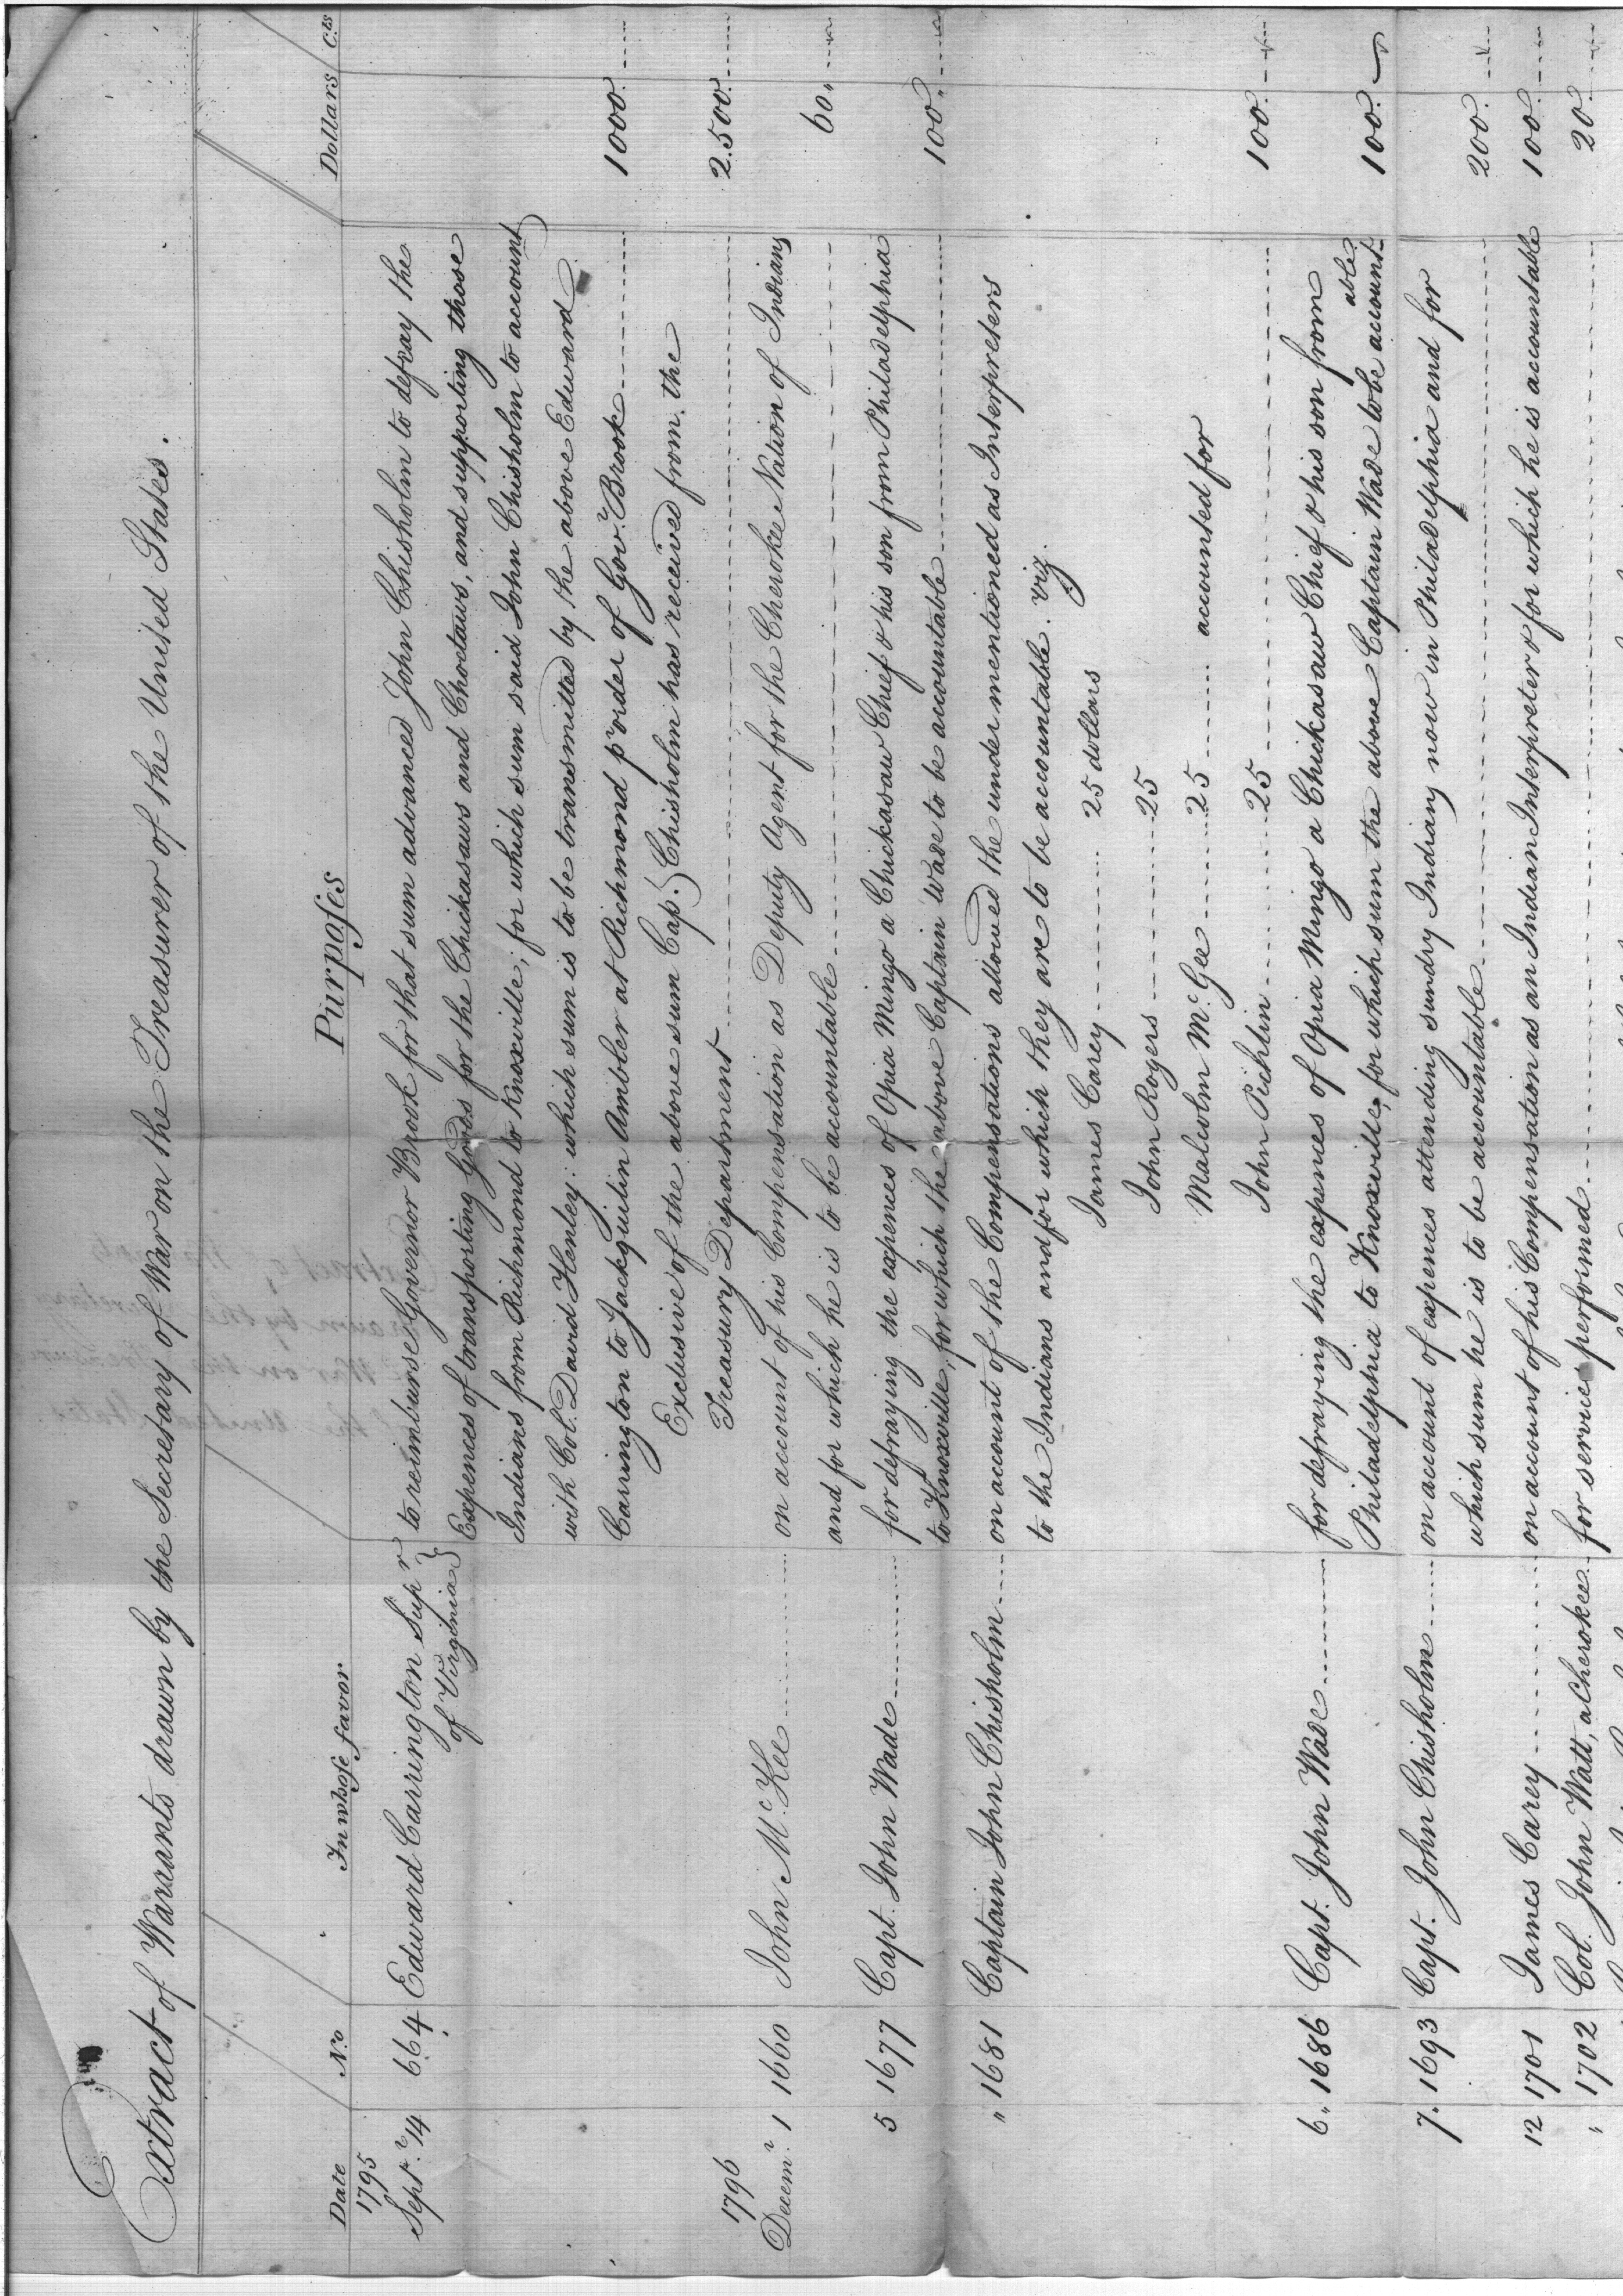 Extract of Warrants drawn by the Secretary of War on the Treasurer of the United States.
Date No. In whose favor Purposes Dollars Cts
1795
Septr. 14 664 Edward Carrington Supr to reimburse Governor Brook for that sum advanced John Chisholm to defray the
of Virginia } Expences of transporting Goods for the Chickasaws and Choctaws, and supporting those
Indians from Richmond to Knoxville; for which sum said John Chisholm to account
with Col. David Henley: which sum is to be transmitted by the above Edward
Carrington to Jackquilin Ambler at Richmond pr order of Govr. Brook 1000
Exclusive of the above sum Cap. Chisholm has received from the
Treasury Department 2.500
1796
Decemr. 1 1660 John Mc.Kee on account of his Compensation as Deputy Agent for the Cherokee Nation of Indians
and for which he is to be accountable 60
5 1677 Capt. John Wade for defraying the expences of Opia Mingo a Chickasaw Chief & his son from Philadelphia
to Knoxville, for which the above Captain Wade to be accountable 100
" 1681 Captain John Chisholm on account of the Compensations allowed the undermentioned as Interpreters
to the Indians and for which they are to be accountable. viz.
James Carey 25 dollars
John Rogers 25
Malcolm Mc.Gee 25 accounted for
John Pichlin 25 100
6 1686 Capt. John Wade for defraying the expences of Opia Mingo a Chickasaw Chief & his son from
Philadelphia to Knoxville, for which sum the above Captain Wade to be accountable 100
7. 1693 Capt. John Chisholm on account of expences attending sundry Indians now in Philadelphia and for
which sum he is to be accountable 200
12 1701 James Carey on account of his Compensation as an Indian Interpreter & for which he is accountable 100
" 1702 Col. John Watt, a Cherokee for services performed 20